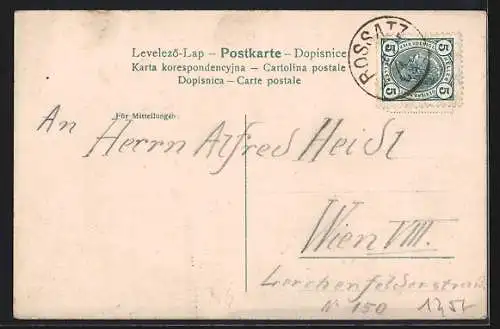 Levelező-Lap – Postkarte – Dopisnice
Karta korespondencyjna – Cartolina postale
Dopisnica – Carte postale
ROSSATZ
5 5
5 5
Für Mitteilungen:
An Herrn Alfred Heidl
Wien VIII.
Lerchenfelderstraße
No 150